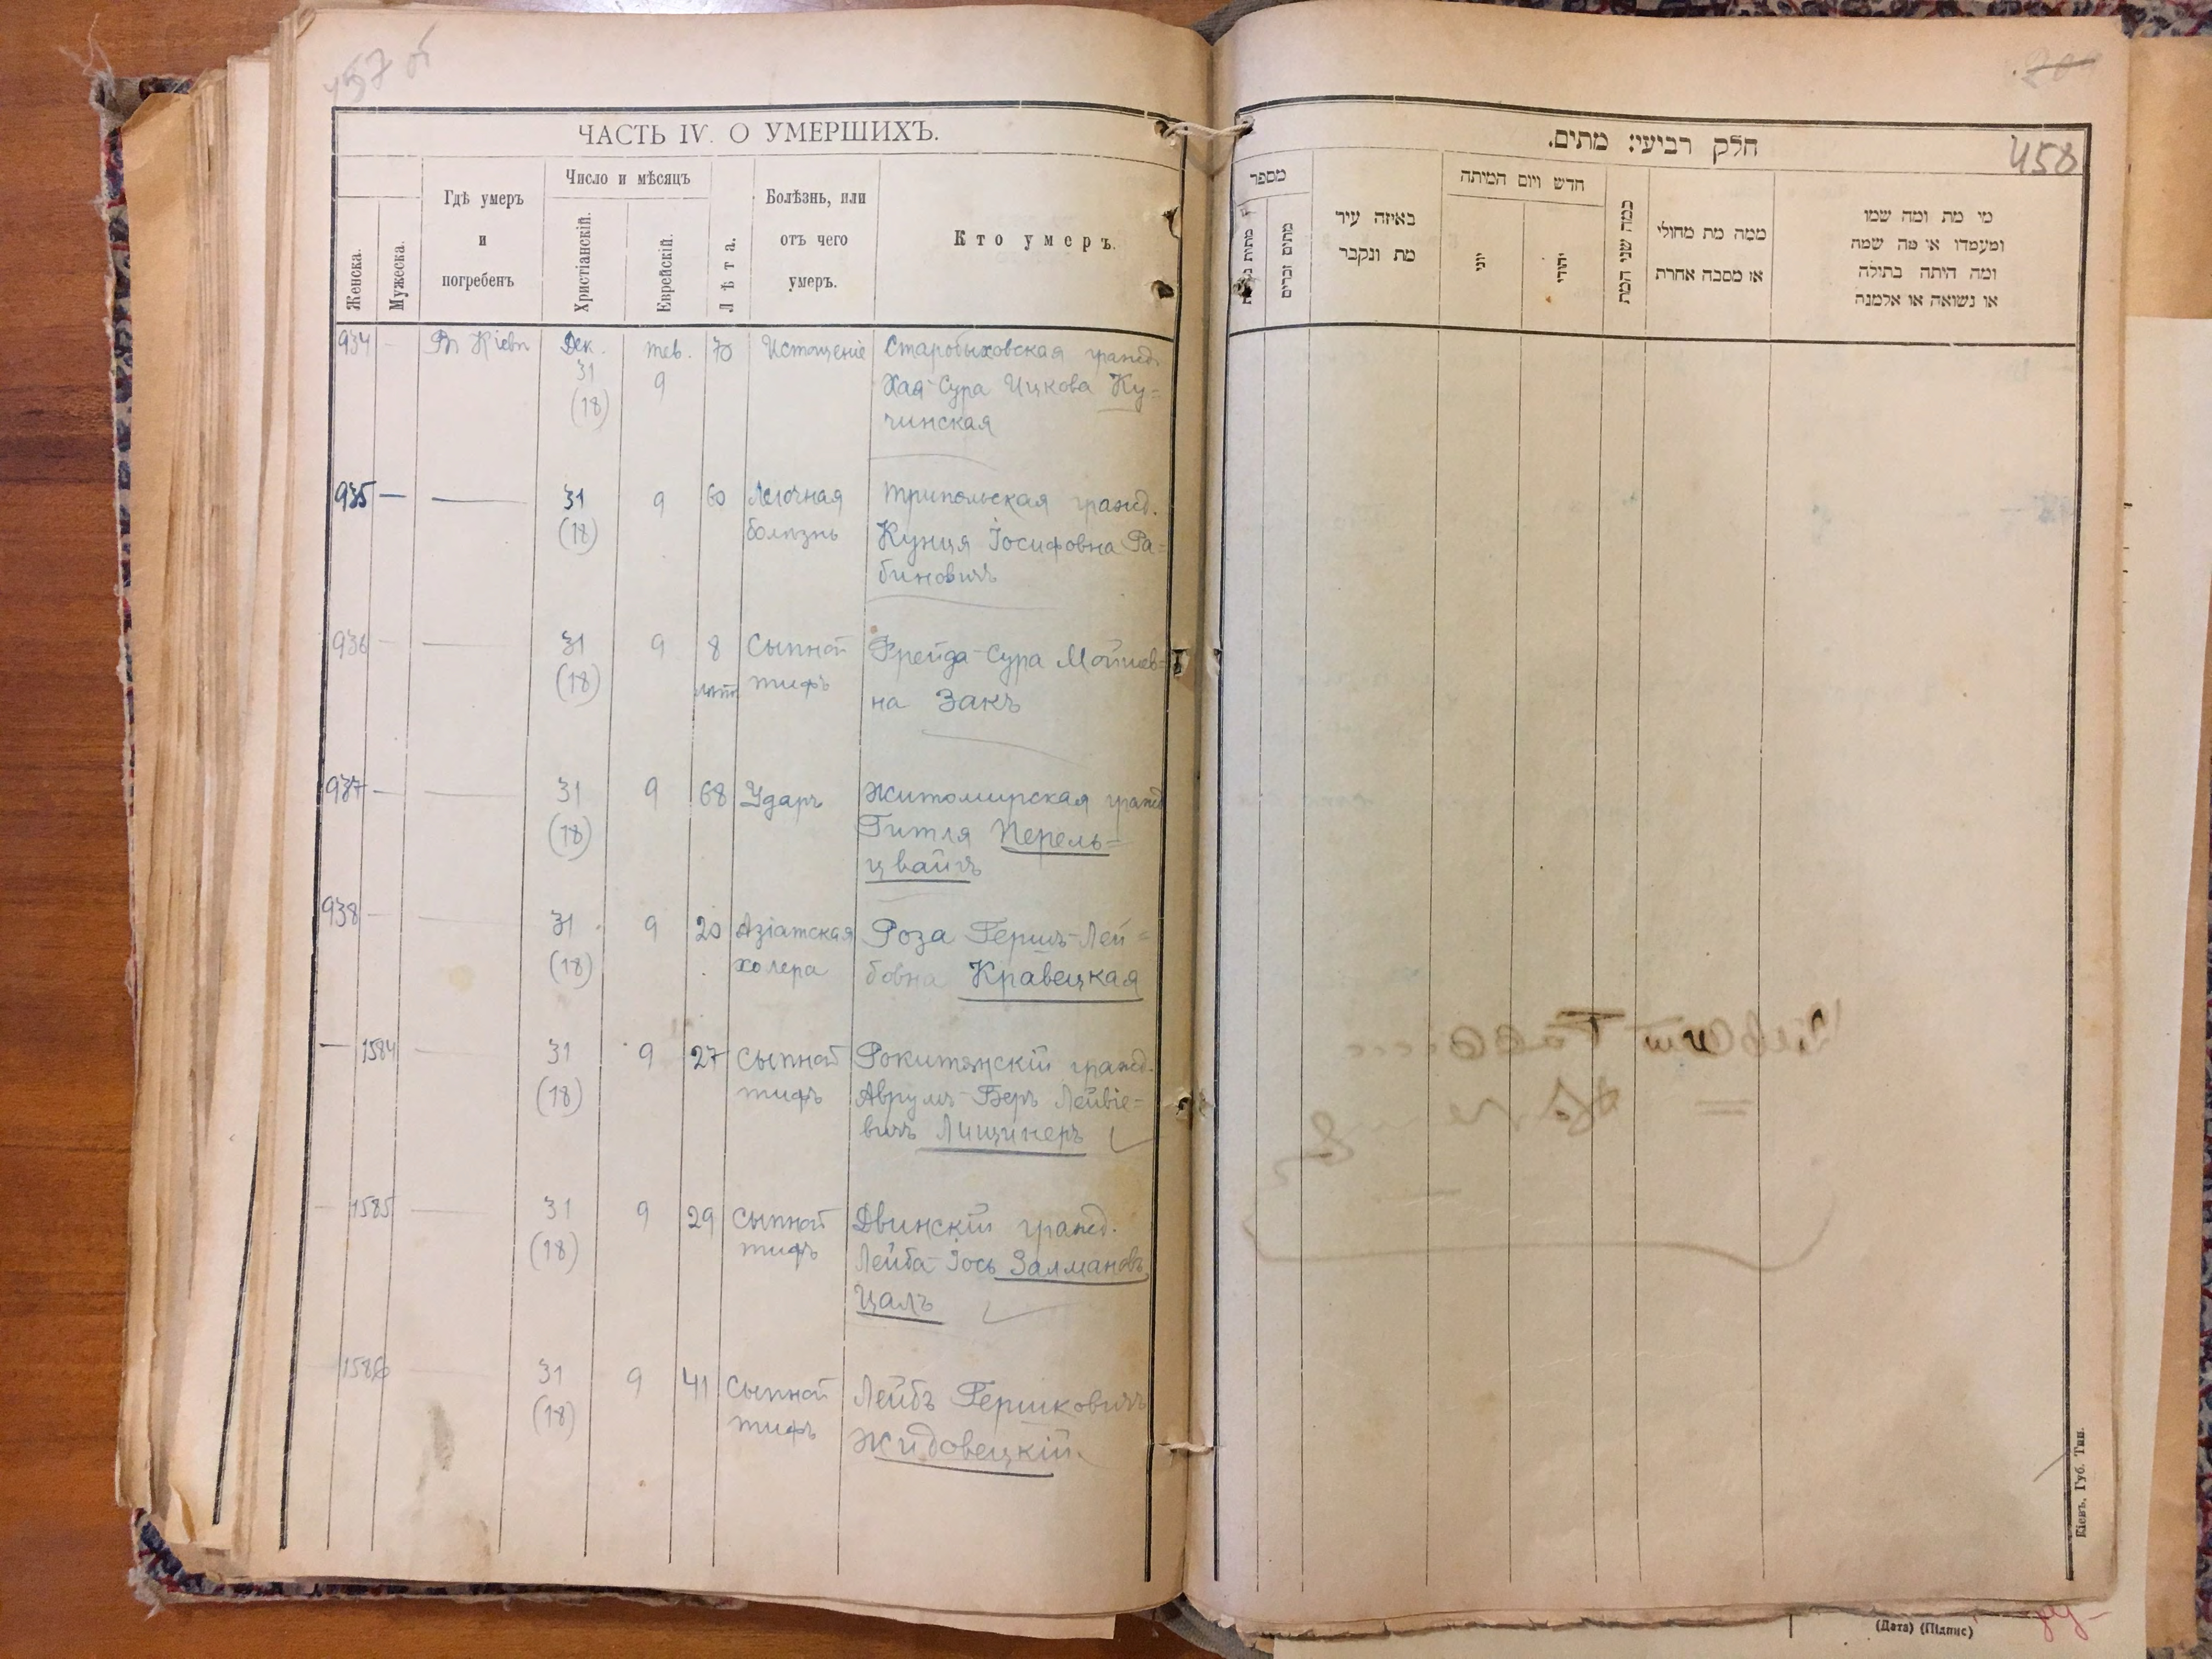 457 об
ЧАСТЬ IV. О УМЕРШИХЪ.
Женска.
Мужеска.
Гдѣ умеръ
и
погребенъ
Число и мѣсяцъ
Христіанскій.
Еврейскій.
Лѣта.
Болѣзнь, или
отъ чего
умеръ.
Кто умеръ.
934 — Въ Кіевѣ Дек. тев. 70 Истощеніе Старобыховская гражд.
31 9 Хая-Сура Ицкова Ку=
(18) чинская
935 — — 31 9 60 Легочная Трипольская гражд.
(18) болѣзнь Кунця Іосифовна Ра=
биновичъ
936 — — 31 9 8 Сыпной Фрейда-Сура Мойшев=
(18) лѣтъ тифъ на Закъ
937 — — 31 9 68 Ударъ Житомирская гражд
(18) Гитля Перель=
цвайгъ
938 — — 31 9 20 Азіатская Роза Гершъ-Лей=
(18) холера бовна Кравецкая
— 1584 — 31 9 27 Сыпной Рокитянскій гражд.
(18) тифъ Аврумъ-Беръ Лейвіе=
вичъ Лищинеръ
— 1585 — 31 9 29 Сыпной Двинскій гражд.
(18) тифъ Лейба-Іось Залмановъ
Цалъ
1586 — 31 9 41 Сыпной Лейбъ Гершковичъ
(18) тифъ Жидовецкій
חלק רביעי: מתים.
458
מספר
מתים זכרים
באיזה עיר
מת ונקבר
חדש ויום המיתה
יוני
יהודי
כמה שני המת
ממה מת מחולי
או מסבה אחרת
מי מת ומה שמו
ומעמדו או מה שמה
ומה היתה בתולה
או נשואה או אלמנה
Кіевъ. Губ. Тип.
(Дата) (Підпис)